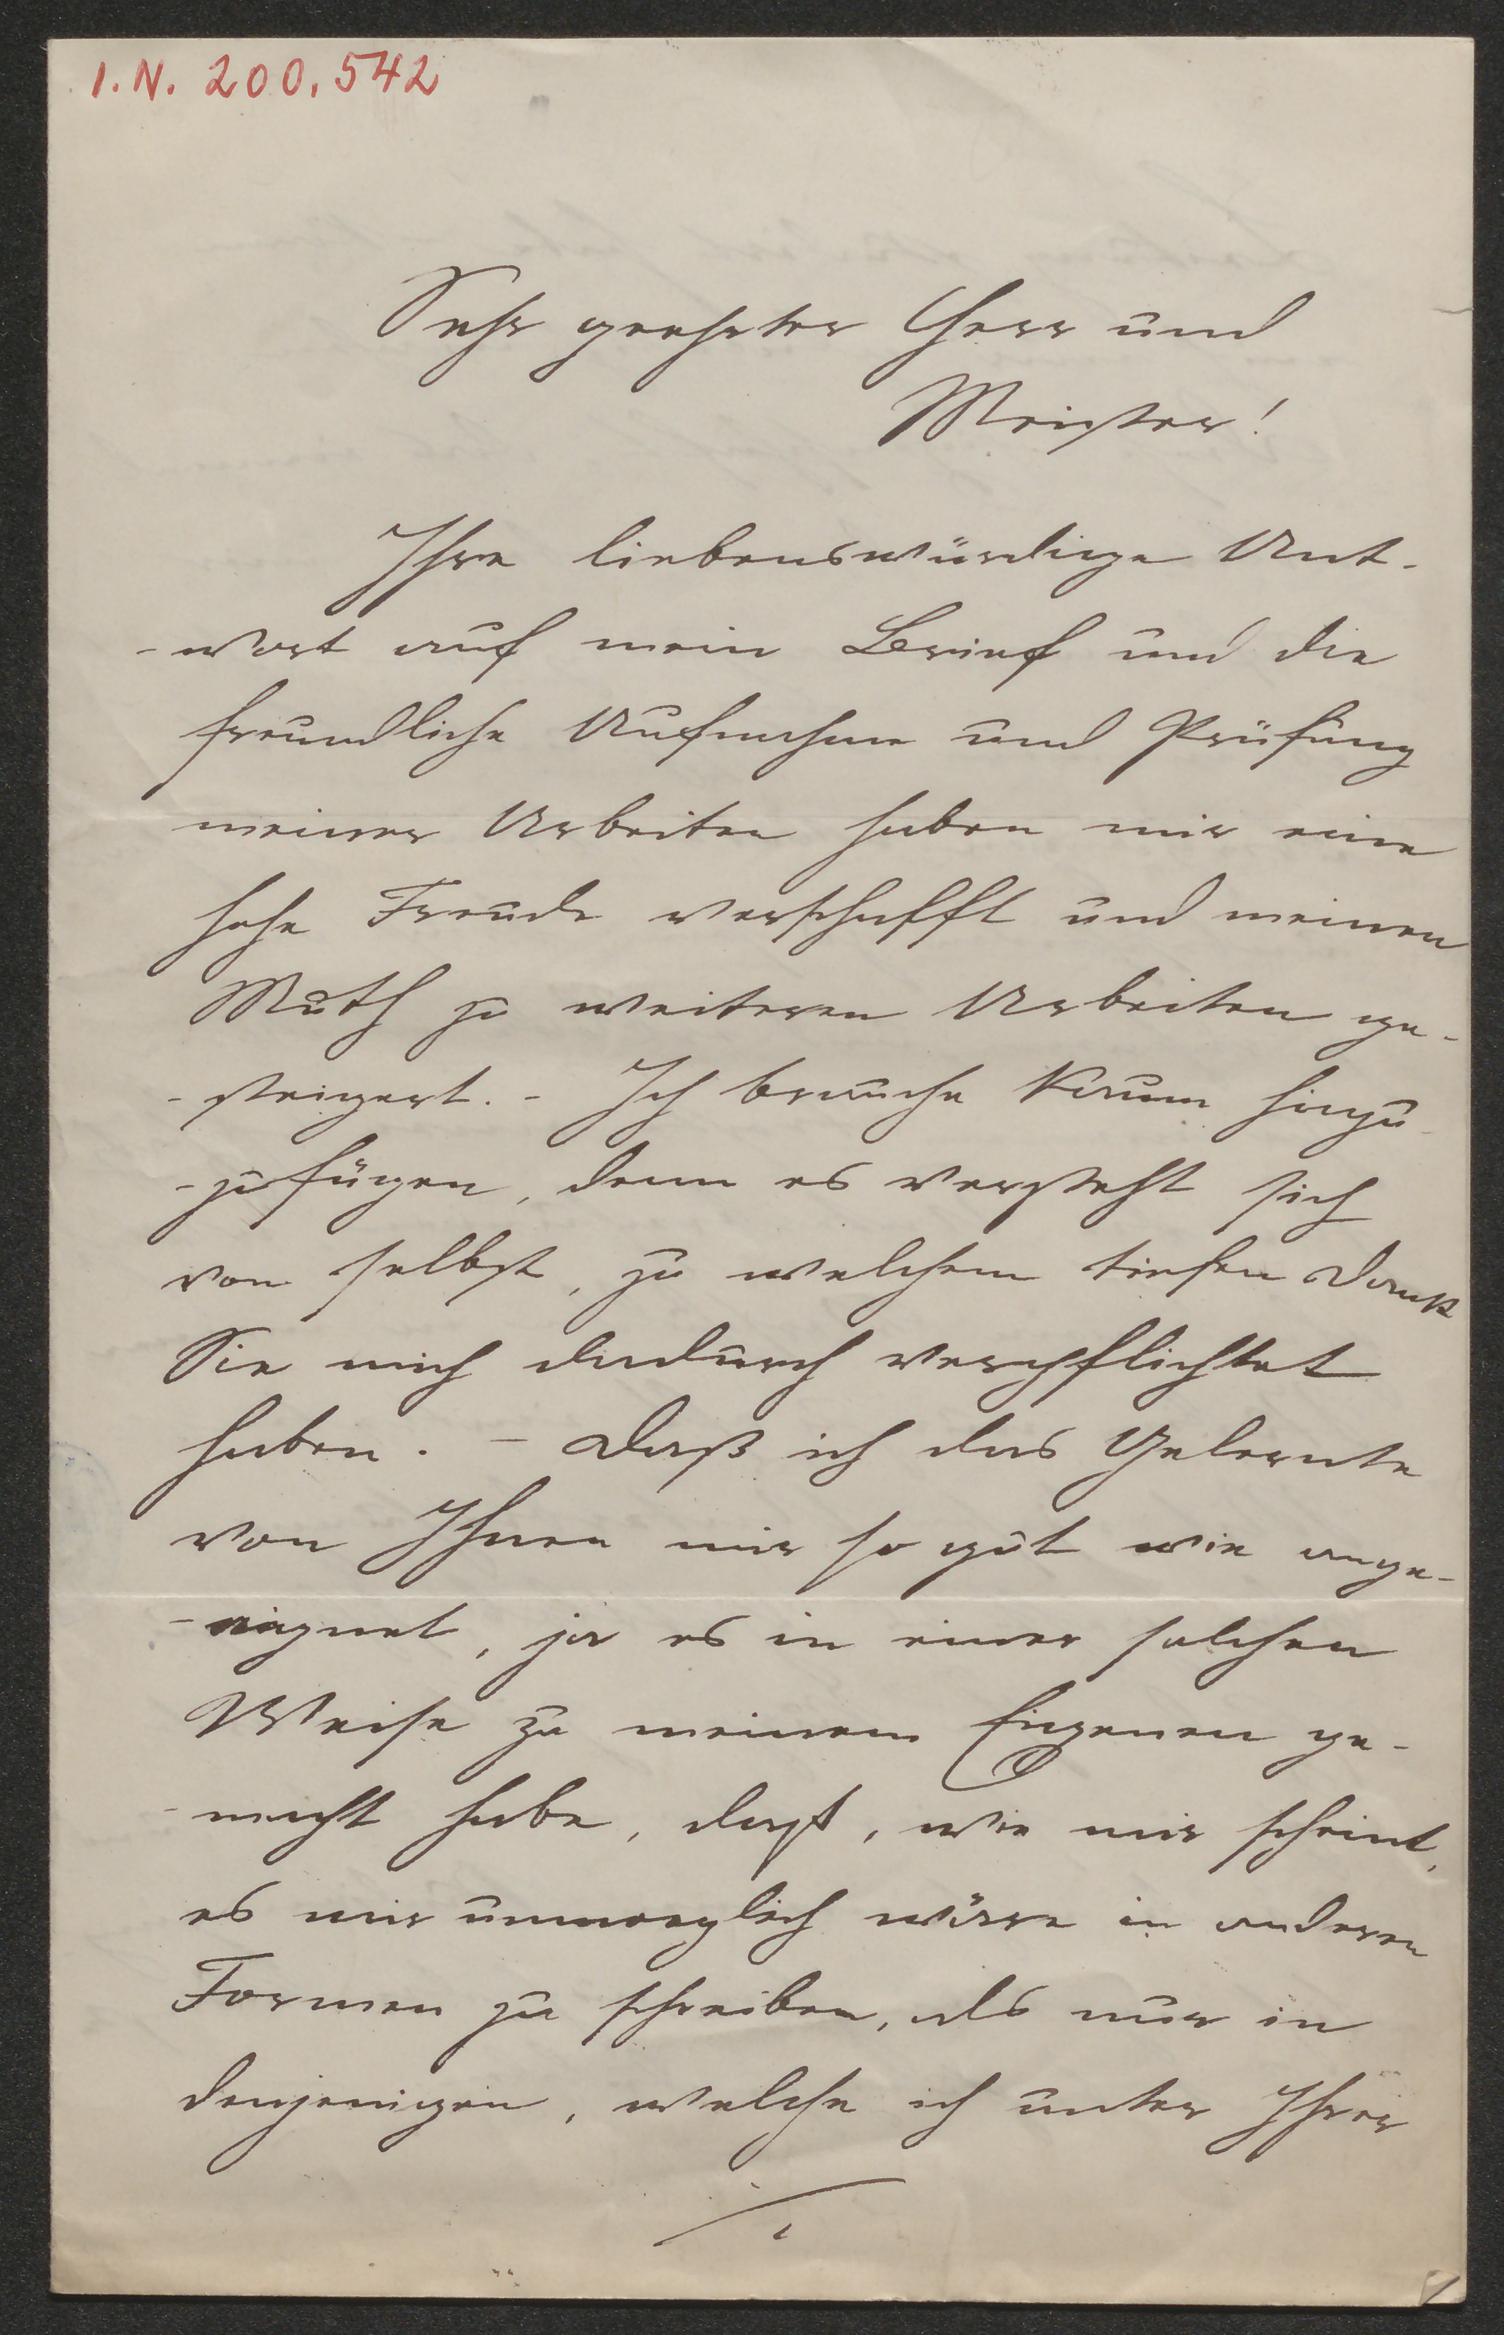 I.N. 200.542
Sehr geehrter Herr und
Meister!
Ihre liebenswürdige Ant-
-wort auf mein Brief und die
freundliche Aufnahme und Prüfung
meiner Arbeiten haben mir eine
hohe Freude verschafft und meinen
Muth zu weiteren Arbeiten ge-
-steigert. - Ich brauche kaum hinzu
-zufügen, denn es versteht sich
von selbst, zu welchem tiefen Dank
Sie mich dadurch verpflichtet
haben. - Daß ich das Gelernte
von Ihnen mir so gut wie ange-
-eignet, ja es in einer solchen
Weise zu meinem Eigenen ge-
-macht habe, daß, wie mir scheint,
es mir unmoeglich wäre in anderen
Formen zu schreiben, als nur in
denjenigen, welche ich unter Ihrer